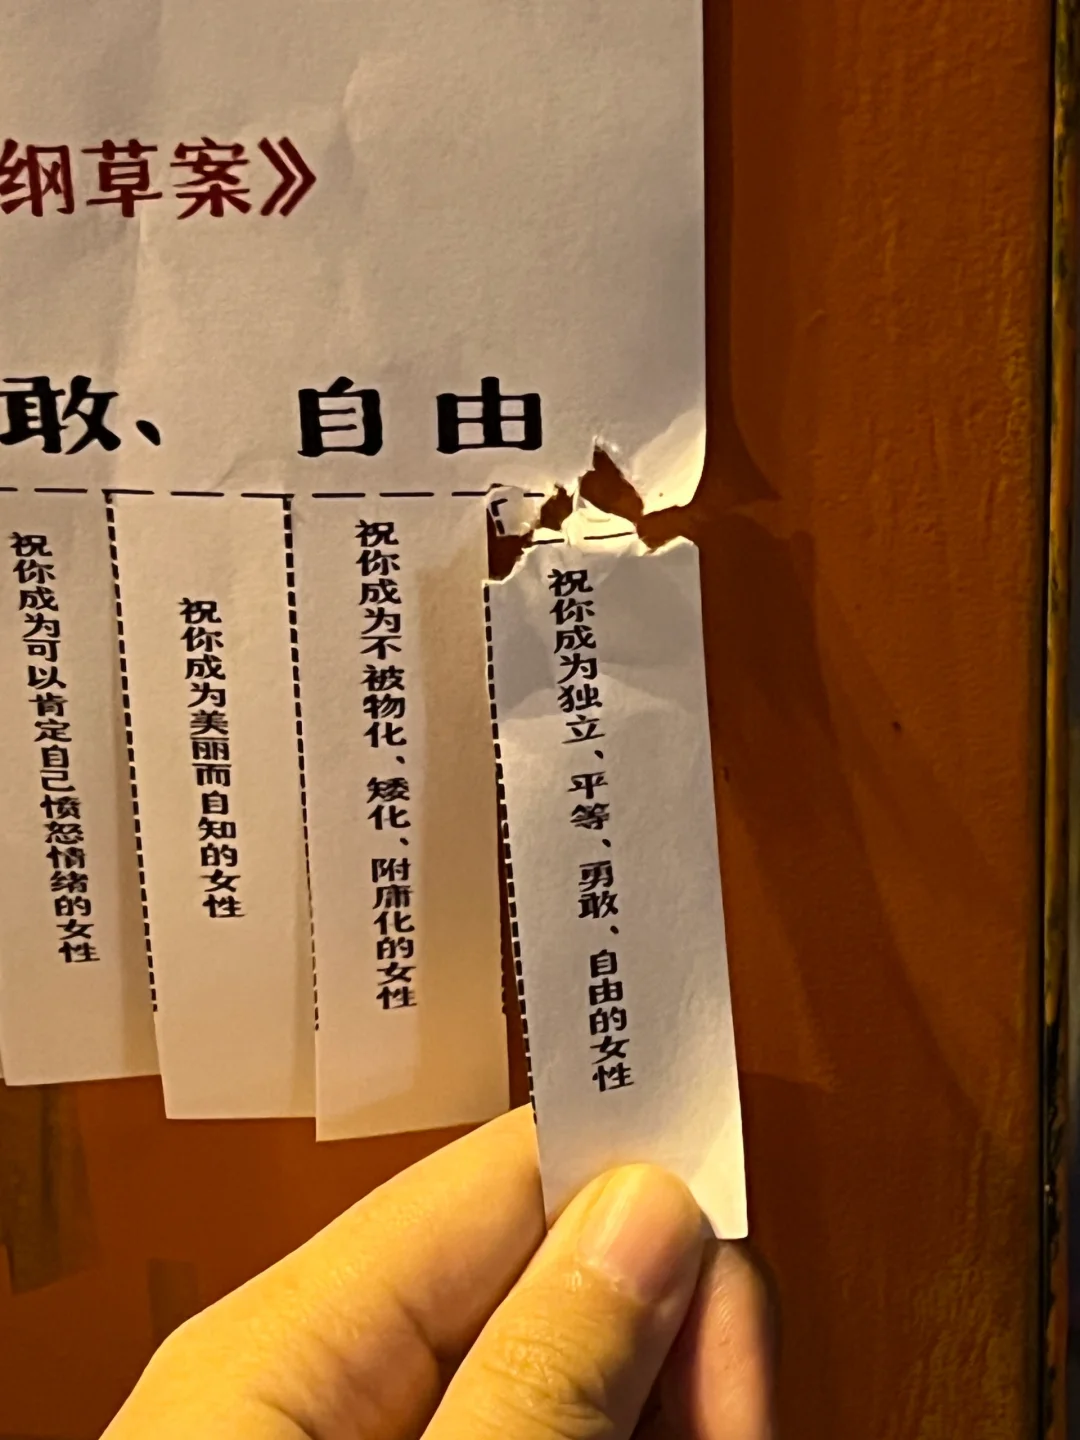 纲草案》
敢、 自由
祝你成为可以肯定自己愤怒情绪的女性
祝你成为美丽而自知的女性
祝你成为不被物化、矮化、附庸化的女性
祝你成为独立、平等、勇敢、自由的女性